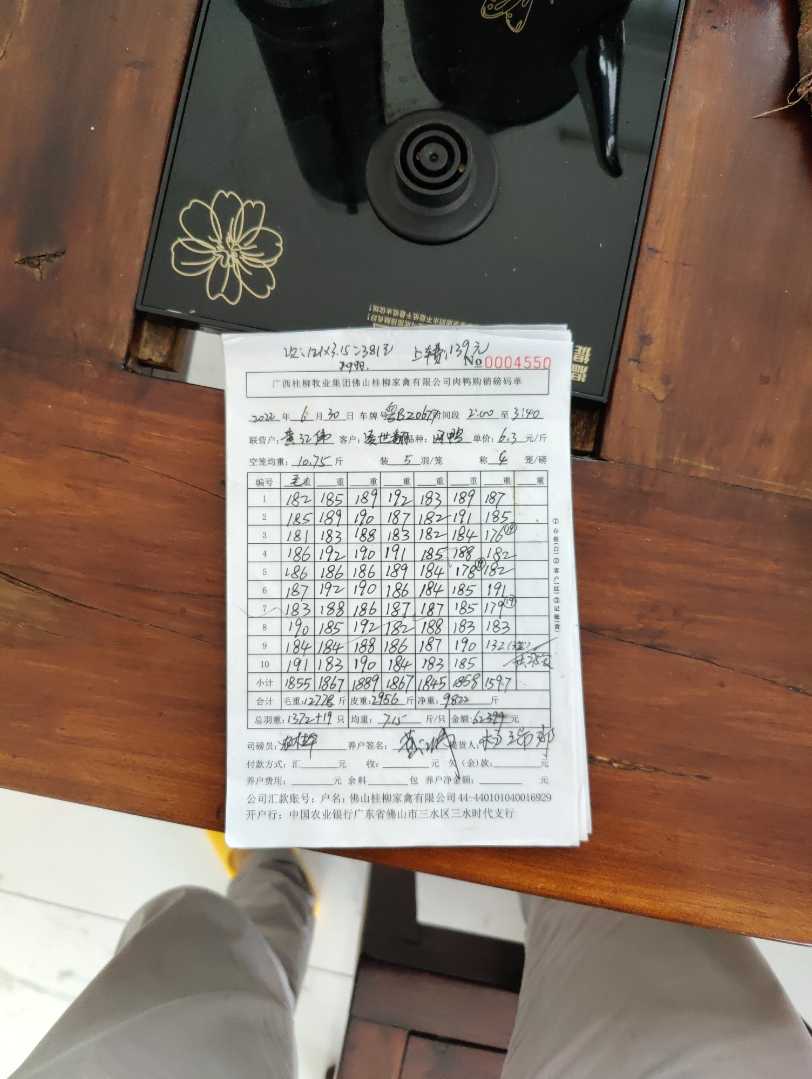 1/2:121×3.15=381元 上车费:139元
No 0004550
广西桂柳牧业集团佛山桂柳家禽有限公司肉鸭购销磅码单
2022 年 6 月 30 日 车牌号 时间段 2:00 至 3:40
联营户: 客户: 品种: 鸭 单价: 6.3 元/斤
空笼均重: 10.75 斤 装 5 羽/笼 称 4 笼/磅
编号 毛重 重 重 重 重 重 重 重
1 182 185 189 192 183 189 187
2 185 189 190 187 182 191 185
3 181 183 188 183 182 184 176
4 186 192 190 191 185 188 182
5 186 186 186 189 184 178 182
6 187 192 190 186 184 185 191
7 183 188 186 187 187 185 179
8 190 185 192 182 188 183 183
9 184 184 188 186 187 190 132
10 191 183 190 184 183 185
小计 1855 1867 1889 1867 1845 1858 1597
合计 毛重:12778 斤 皮重:2956 斤 净重:9822 斤
总羽重:1372+19 只 均重: 7.15 斤/只 金额:62399 元
司磅员: 养户签名: 提货人:
付款方式:汇 元 收: 元 欠(余)款: 元
养户费用: 元 余料 包 养户净金额: 元
公司汇款账号:户名:佛山桂柳家禽有限公司44-440101040016929
开户行:中国农业银行广东省佛山市三水区三水时代支行